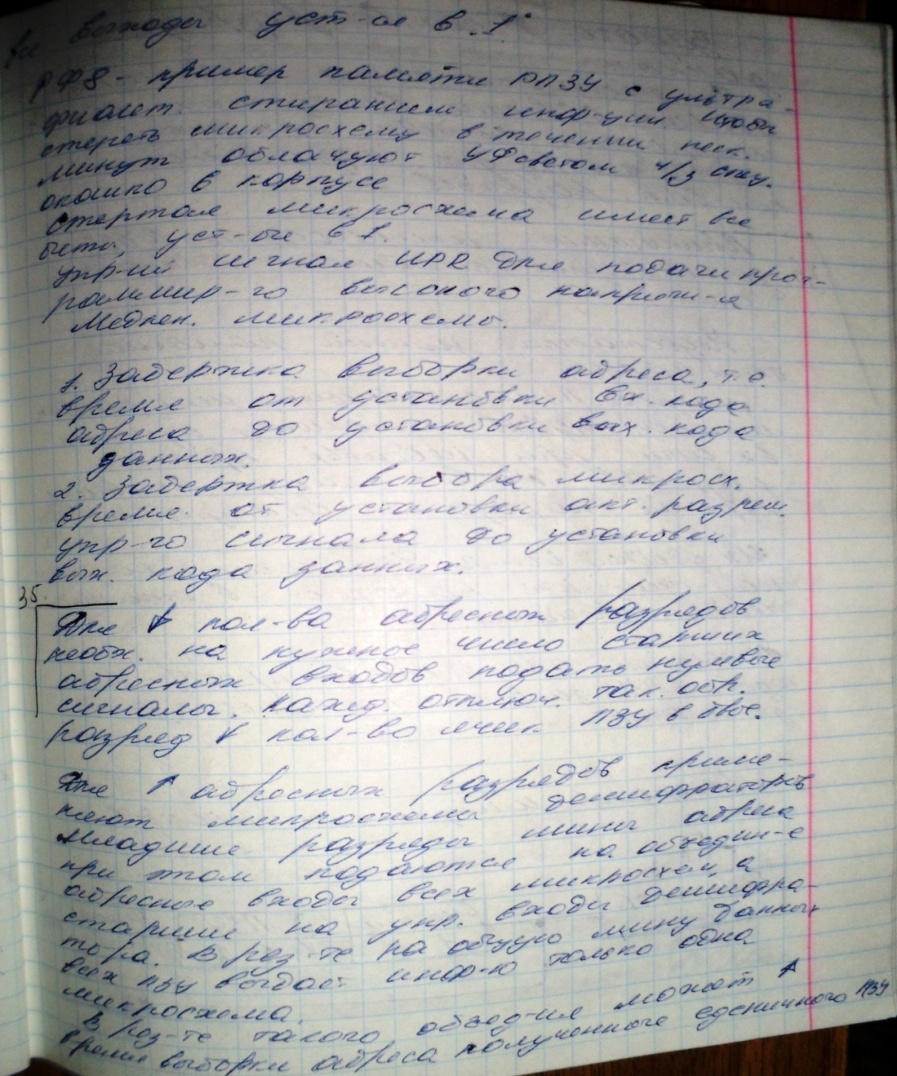 выходы уст-ся в 1.
РФ8 - пример памяти РПЗУ с ультра-
фиолет. стиранием инф-ции. Чтобы
стереть микросхему в течении неск.
минут облачуют УФ светом ч/з спец.
окошко в корпусе
Стертая микросхема имеет все
биты, уст-ые в 1.
упр-ий сигнал UPR для подачи прог-
раммир-го высокого напряж-я
Медлен. микросхемы.
1. Задержка выборки адреса, т.е.
время от установки вх. кода
адреса до установки вых. кода
данных.
2. Задержка выбора микросх.
время от установки акт. разреш.
упр-го сигнала до установки
вых. кода данных.
35.
Для ↓ кол-ва адресных разрядов
необх. на нужное число старших
адресных входов подать нулевые
сигналы. Кажд. отключ. так. обр.
разряд ↓ кол-во ячеек ПЗУ в двое.
Для ↑ адресных разрядов приме-
няют микросхемы дешифраторов
Младшие разряды шины адреса
при этом подаются на объедин-е
адресные входы всех микросхем, а
старшие на упр. входы дешифра-
тора. В рез-те на общую шину данных
всех ПЗУ выдаст инф-ю только одна
микросхема.
В рез-те такого объед-ия может ↑
время выборки адреса полученного единичного ПЗУ